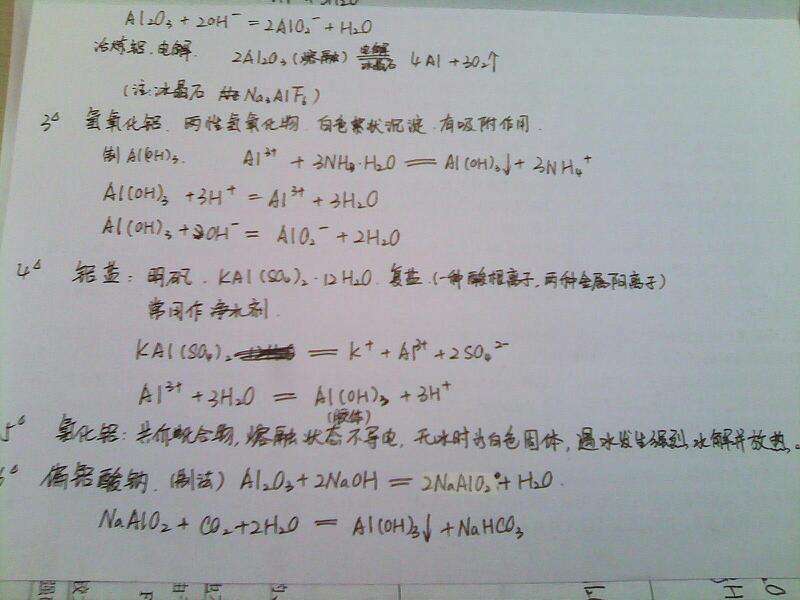 Al₂O₃ + 2OH⁻ = 2AlO₂⁻ + H₂O
冶炼铝. 电解. 2Al₂O₃(熔融) 电解 冰晶石 4Al + 3O₂↑
(注:冰晶石 Na₃AlF₆)
3△ 氢氧化铝. 两性氢氧化物. 白色絮状沉淀. 有吸附作用.
制Al(OH)₃. Al³⁺ + 3NH₃·H₂O = Al(OH)₃↓ + 3NH₄⁺
Al(OH)₃ + 3H⁺ = Al³⁺ + 3H₂O
Al(OH)₃ + OH⁻ = AlO₂⁻ + 2H₂O
4△ 铝盐: 明矾. KAl(SO₄)₂·12H₂O. 复盐.(一种酸根离子,两种金属阳离子)
常用作净水剂.
KAl(SO₄)₂ = K⁺ + Al³⁺ + 2SO₄²⁻
Al³⁺ + 3H₂O = Al(OH)₃ + 3H⁺
(胶体)
5△ 氯化铝: 共价化合物, 熔融状态不导电, 无水时为白色固体, 遇水发生强烈水解并放热.
6△ 偏铝酸钠. (制法) Al₂O₃ + 2NaOH = 2NaAlO₂ + H₂O.
NaAlO₂ + CO₂ + 2H₂O = Al(OH)₃↓ + NaHCO₃